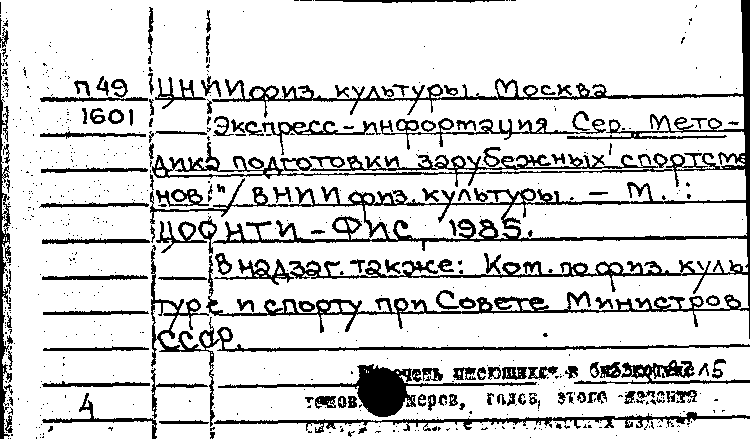 П49 ЦНИИ физ. культуры. Москва
1601 Экспресс-информация. Сер. "Мето-
дика подготовки зарубежных спортсме
нов" / ВНИИ физ. культуры. - М.:
ЦООНТИ-ФИС, 1985.
В надзаг. также: Ком. по физ. куль-
туре и спорту при Совете Министров
СССР.
имеющихся в 15
4 томов, номеров, годов этого издания